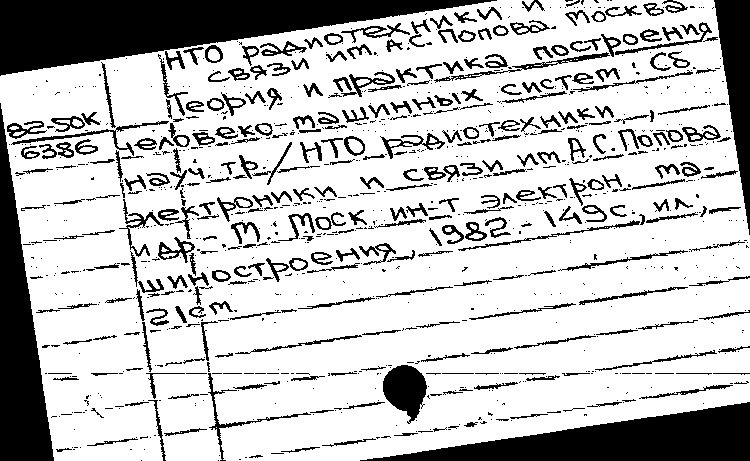 НТО радиотехники и
связи им. А.С. Попова. Москва.
Теория и практика построения
82-50К
6386
человеко-машинных систем: Сб.
науч. тр. / НТО радиотехники,
электроники и связи им. А.С. Попова
и др. - М.: Моск. ин-т электрон. ма-
шиностроения, 1982. - 149с., ил.;
21см.